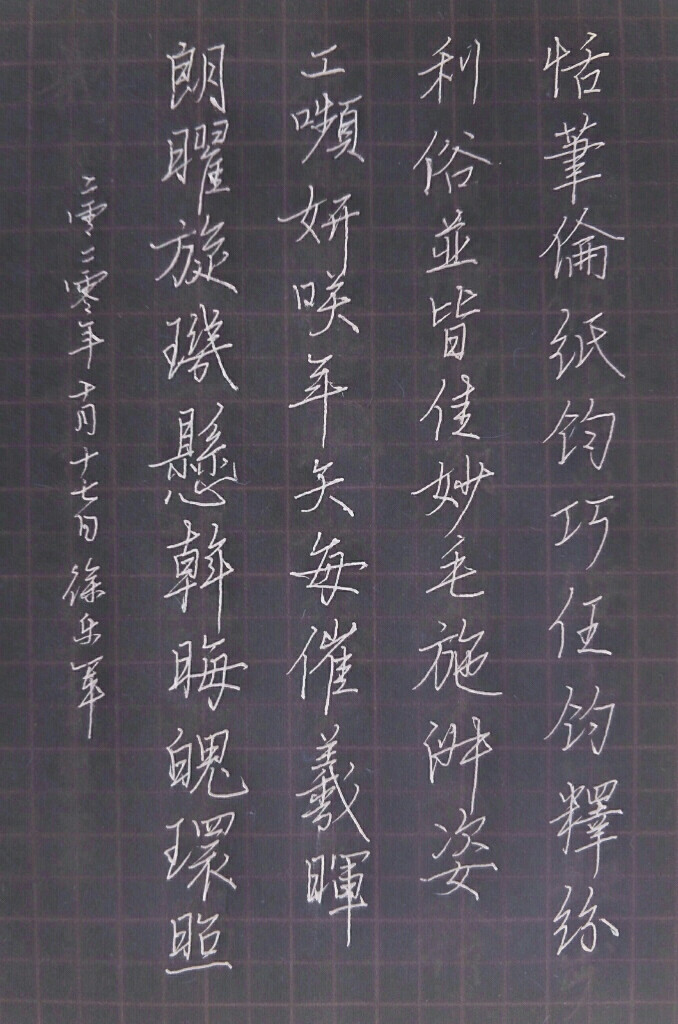 恬筆倫紙鈞巧任鈞釋紛
利俗並皆佳妙毛施淑姿
工嚬妍咲年矢每催羲暉
朗曜旋璣懸斡晦魄環照
二零二零年十月十七日徐乐军